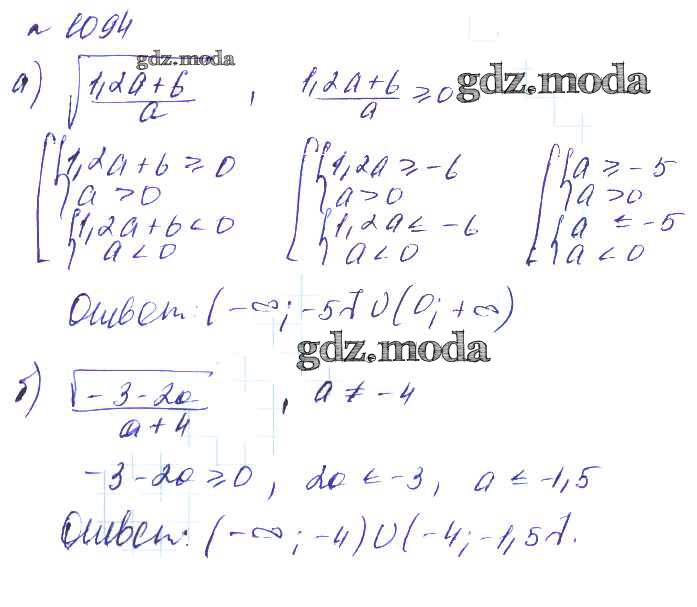 № 1094
gdz.moda
а) √(1,2a+6 / a) , 1,2a+6 / a ≥ 0
gdz.moda
1,2a+6 ≥ 0 1,2a ≥ -6 a ≥ -5
a > 0 a > 0 a > 0
1,2a+6 < 0 1,2a ≤ -6 a ≤ -5
a < 0 a < 0 a < 0
Ответ: (-∞; -5] ∪ (0; +∞)
gdz.moda
б) √(-3-2a) / a+4 , a ≠ -4
-3-2a ≥ 0, 2a ≤ -3, a ≤ -1,5
Ответ: (-∞; -4) ∪ (-4; -1,5].